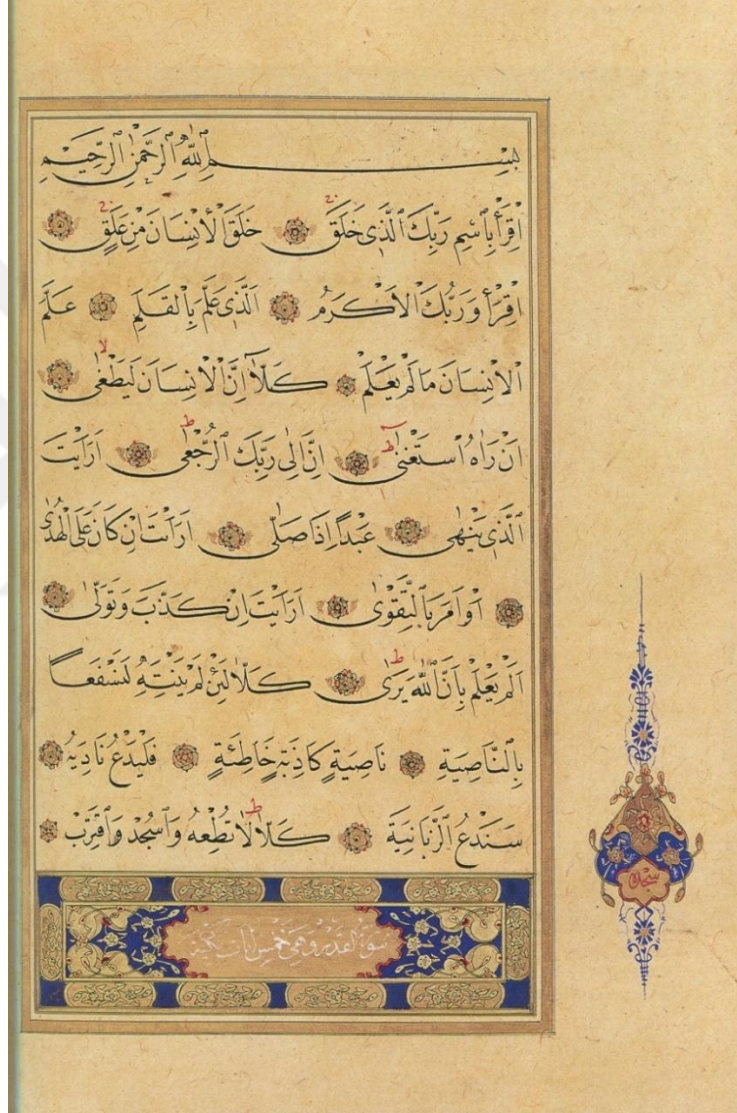 بِسْمِ ٱللّٰهِ ٱلرَّحْمٰنِ ٱلرَّحِيمِ
اِقْرَأْ بِٱسْمِ رَبِّكَ ٱلَّذِى خَلَقَ ۞ خَلَقَ ٱلْاِنْسَانَ مِنْ عَلَقٍ ۞
اِقْرَأْ وَرَبُّكَ ٱلْاَكْرَمُ ۞ اَلَّذِى عَلَّمَ بِٱلْقَلَمِ ۞ عَلَّمَ
ٱلْاِنْسَانَ مَا لَمْ يَعْلَمْ ۞ كَلَّآ اِنَّ ٱلْاِنْسَانَ لَيَطْغٰى ۞
اَنْ رَاٰهُ ٱسْتَغْنٰى ۞ اِنَّ اِلٰى رَبِّكَ ٱلرُّجْعٰى ۞ اَرَاَيْتَ
ٱلَّذِى يَنْهٰى ۞ عَبْدًا اِذَا صَلّٰى ۞ اَرَاَيْتَ اِنْ كَانَ عَلَى ٱلْهُدٰى
۞ اَوْ اَمَرَ بِٱلتَّقْوٰى ۞ اَرَاَيْتَ اِنْ كَذَّبَ وَتَوَلّٰى ۞
اَلَمْ يَعْلَمْ بِاَنَّ ٱللّٰهَ يَرٰى ۞ كَلَّا لَئِنْ لَمْ يَنْتَهِ لَنَسْفَعًا
بِٱلنَّاصِيَةِ ۞ نَاصِيَةٍ كَاذِبَةٍ خَاطِئَةٍ ۞ فَلْيَدْعُ نَادِيَهُ ۞
سَنَدْعُ ٱلزَّبَانِيَةَ ۞ كَلَّا لَا تُطِعْهُ وَٱسْجُدْ وَٱقْتَرِبْ ۞
سجده
سورة القدر وهى خمس ايات مكية